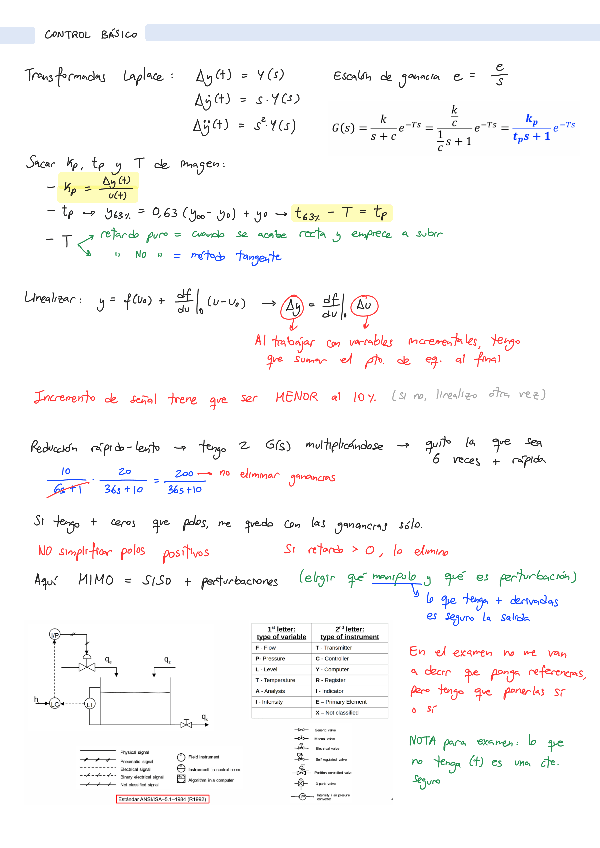 CONTROL BÁSICO
Transformadas Laplace: Δy(t) = Y(s)
Δẏ(t) = s·Y(s)
Δÿ(t) = s²·Y(s)
Escalón de ganancia e = e/s
G(s) = k/(s + c) e^-Ts = (k/c)/((1/c)s + 1) e^-Ts = kp/(tps + 1) e^-Ts
Sacar Kp, tp y T de imagen:
- Kp = Δy(t)/u(t)
- tp → y63% = 0,63 (y∞ - y0) + y0 → t63% - T = tp
- T
retardo puro = cuando se acabe recta y empiece a subir
" NO " = método tangente
Linealizar: y = f(u0) + df/du|0 (u-u0) → Δy = df/du|0 Δu
Al trabajar con variables incrementales, tengo
que sumar el pto. de eq. al final
Incremento de señal tiene que ser MENOR al 10%. (si no, linealizo otra vez)
Reducción rápido-lento → tengo 2 G(s) multiplicándose → quito la que sea
6 veces + rápida
10/(6s+1) · 20/(36s+10) = 200/(36s+10) → no eliminar ganancias
Si tengo + ceros que polos, me quedo con las ganancias sólo.
NO simplificar polos positivos
Si retardo > 0, lo elimino
Aquí MIMO = SISO + perturbaciones (elegir qué manipulo y qué es perturbación)
lo que tenga + derivadas
es seguro la salida
1st letter: type of variable
2nd letter: type of instrument
F - Flow
T - Transmitter
P - Pressure
C - Controller
L - Level
Y - Computer
T - Temperature
R - Register
A - Analysis
I - Indicator
I - Intensity
E – Primary Element
X – Not classified
I/P
LC
LT
h
q
q
q
Physical signal
Pneumatic signal
Electrical signal
Binary electrical signal
Not classified signal
Field instrument
Algorithm in a computer
Estándar ANSI/ISA-5.1-1984 (R1992)
En el examen no me van
a decir que ponga referencias,
pero tengo que ponerlas sí
o sí
NOTA para examen: lo que
no tenga (t) es una cte.
seguro